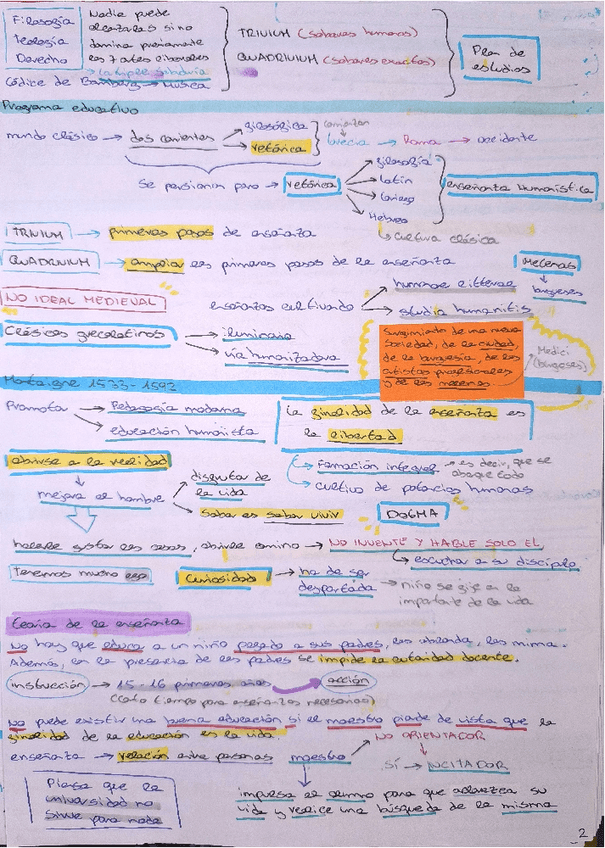 Filosofía
Teología
Derecho
Nadie puede
alcanzarlas si no
domina previamente
las 7 artes liberales
TRIVIUM (saberes humanos)
QUADRIVIUM (saberes exactos)
Plan de
estudios
Códice de Bamberg → Música
Programa educativo
mundo clásico → dos corrientes → filosófica
→ retórica
Grecia → Roma → occidente
Se persiguen para → retórica → filosofía
→ latín
→ Griego
→ Hebreo
enseñanza humanística
↳ cultura clásica
TRIVIUM → primeros pasos de enseñanza
QUADRIVIUM → amplía los primeros pasos de la enseñanza
Mecenas
↓
burgueses
NO IDEAL MEDIEVAL
enseñanzas cultivado → humanae litterae
→ studia humanitis
Clásicos grecolatinos → iluminaria
→ vía humanizadora
Surgimiento de una nueva
sociedad, de la ciudad,
de la burguesía, de los
artistas profesionales
y de los mecenas
Medici
(burgueses)
Montaigne 1533-1592
Promotor → Pedagogía moderna
→ educación humanista
La finalidad de la enseñanza es
la libertad
abrirse a la realidad
→ Formación integral → es decir, que se
abarque todo
→ cultivo de potencias humanas
mejora al hombre → disfrutar de
la vida
→ Saber es saber vivir
DOGMA
hacerle gustar las cosas, abrirle camino → NO INVENTE Y HABLE SOLO EL
↳ escuchar a su discípulo
Tenemos mucho
Curiosidad → ha de ser
despertada → niño se fije en lo
importante de la vida
Teoría de la enseñanza
No hay que educa a un niño pegado a sus padres, los ablanda, los mima.
Además, en la presencia de los padres se impide la autoridad docente.
instrucción → 15-16 primeros años → acción
(corto tiempo para enseñanzas necesarias)
No puede existir una buena educación si el maestro pierde de vista que la
finalidad de la educación es la vida.
enseñanza → relación entre personas maestro → NO ORIENTADOR
↓
SÍ → INCITADOR
Piensa que la
universidad no
sirve para nada
impulsa al alumno para que establezca su
vida y realice una búsqueda de la misma
2